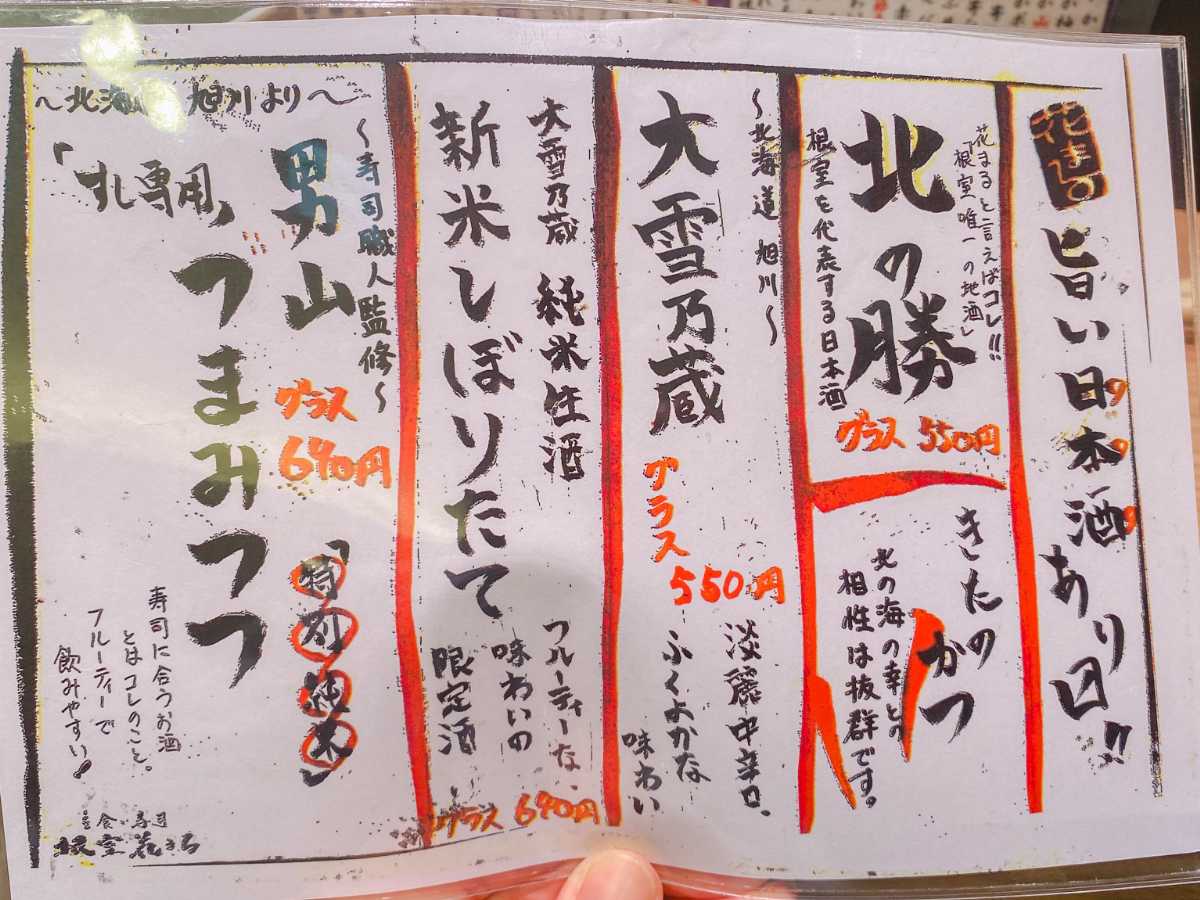 花まる
旨い日本酒あり〼!!
花まると言えばコレ!!
「根室唯一の地酒」
北の勝
根室を代表する日本酒
グラス 550円
きたの
かつ
北の海の幸との
相性は抜群です。
～北海道 旭川～
大雪乃蔵
グラス
550円
淡麗中辛口、
ふくよかな
味わい
大雪乃蔵 純米生酒
新米しぼりたて
フルーティーな、
味わいの
限定酒
グラス 690円
～北海 旭川より～
～寿司職人監修～
男山
グラス
690円
「特別純米」
「すし専用」
つまみつつ
寿司に合うお酒
とはコレのこと。
フルーティーで
飲みやすい!
回転寿司
根室花まる